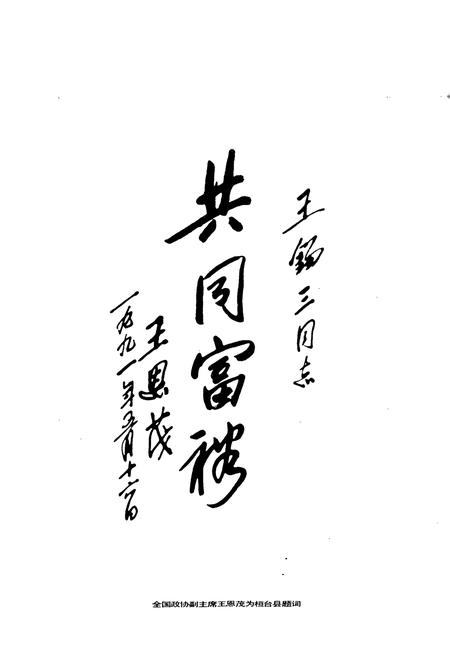 王锡三同志
共同富裕
王恩茂
一九九一年五月十六日
全国政协副主席王恩茂为桓台县题词